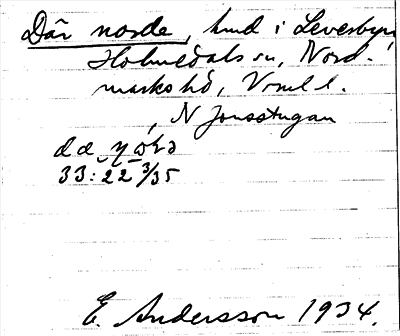 Där norde, hmd i Leverbyn,
Holmedals sn, Nord-
marks hd, Vrml l.
, N Jonsstugan
33:22 3/35
E. Andersson 1934.